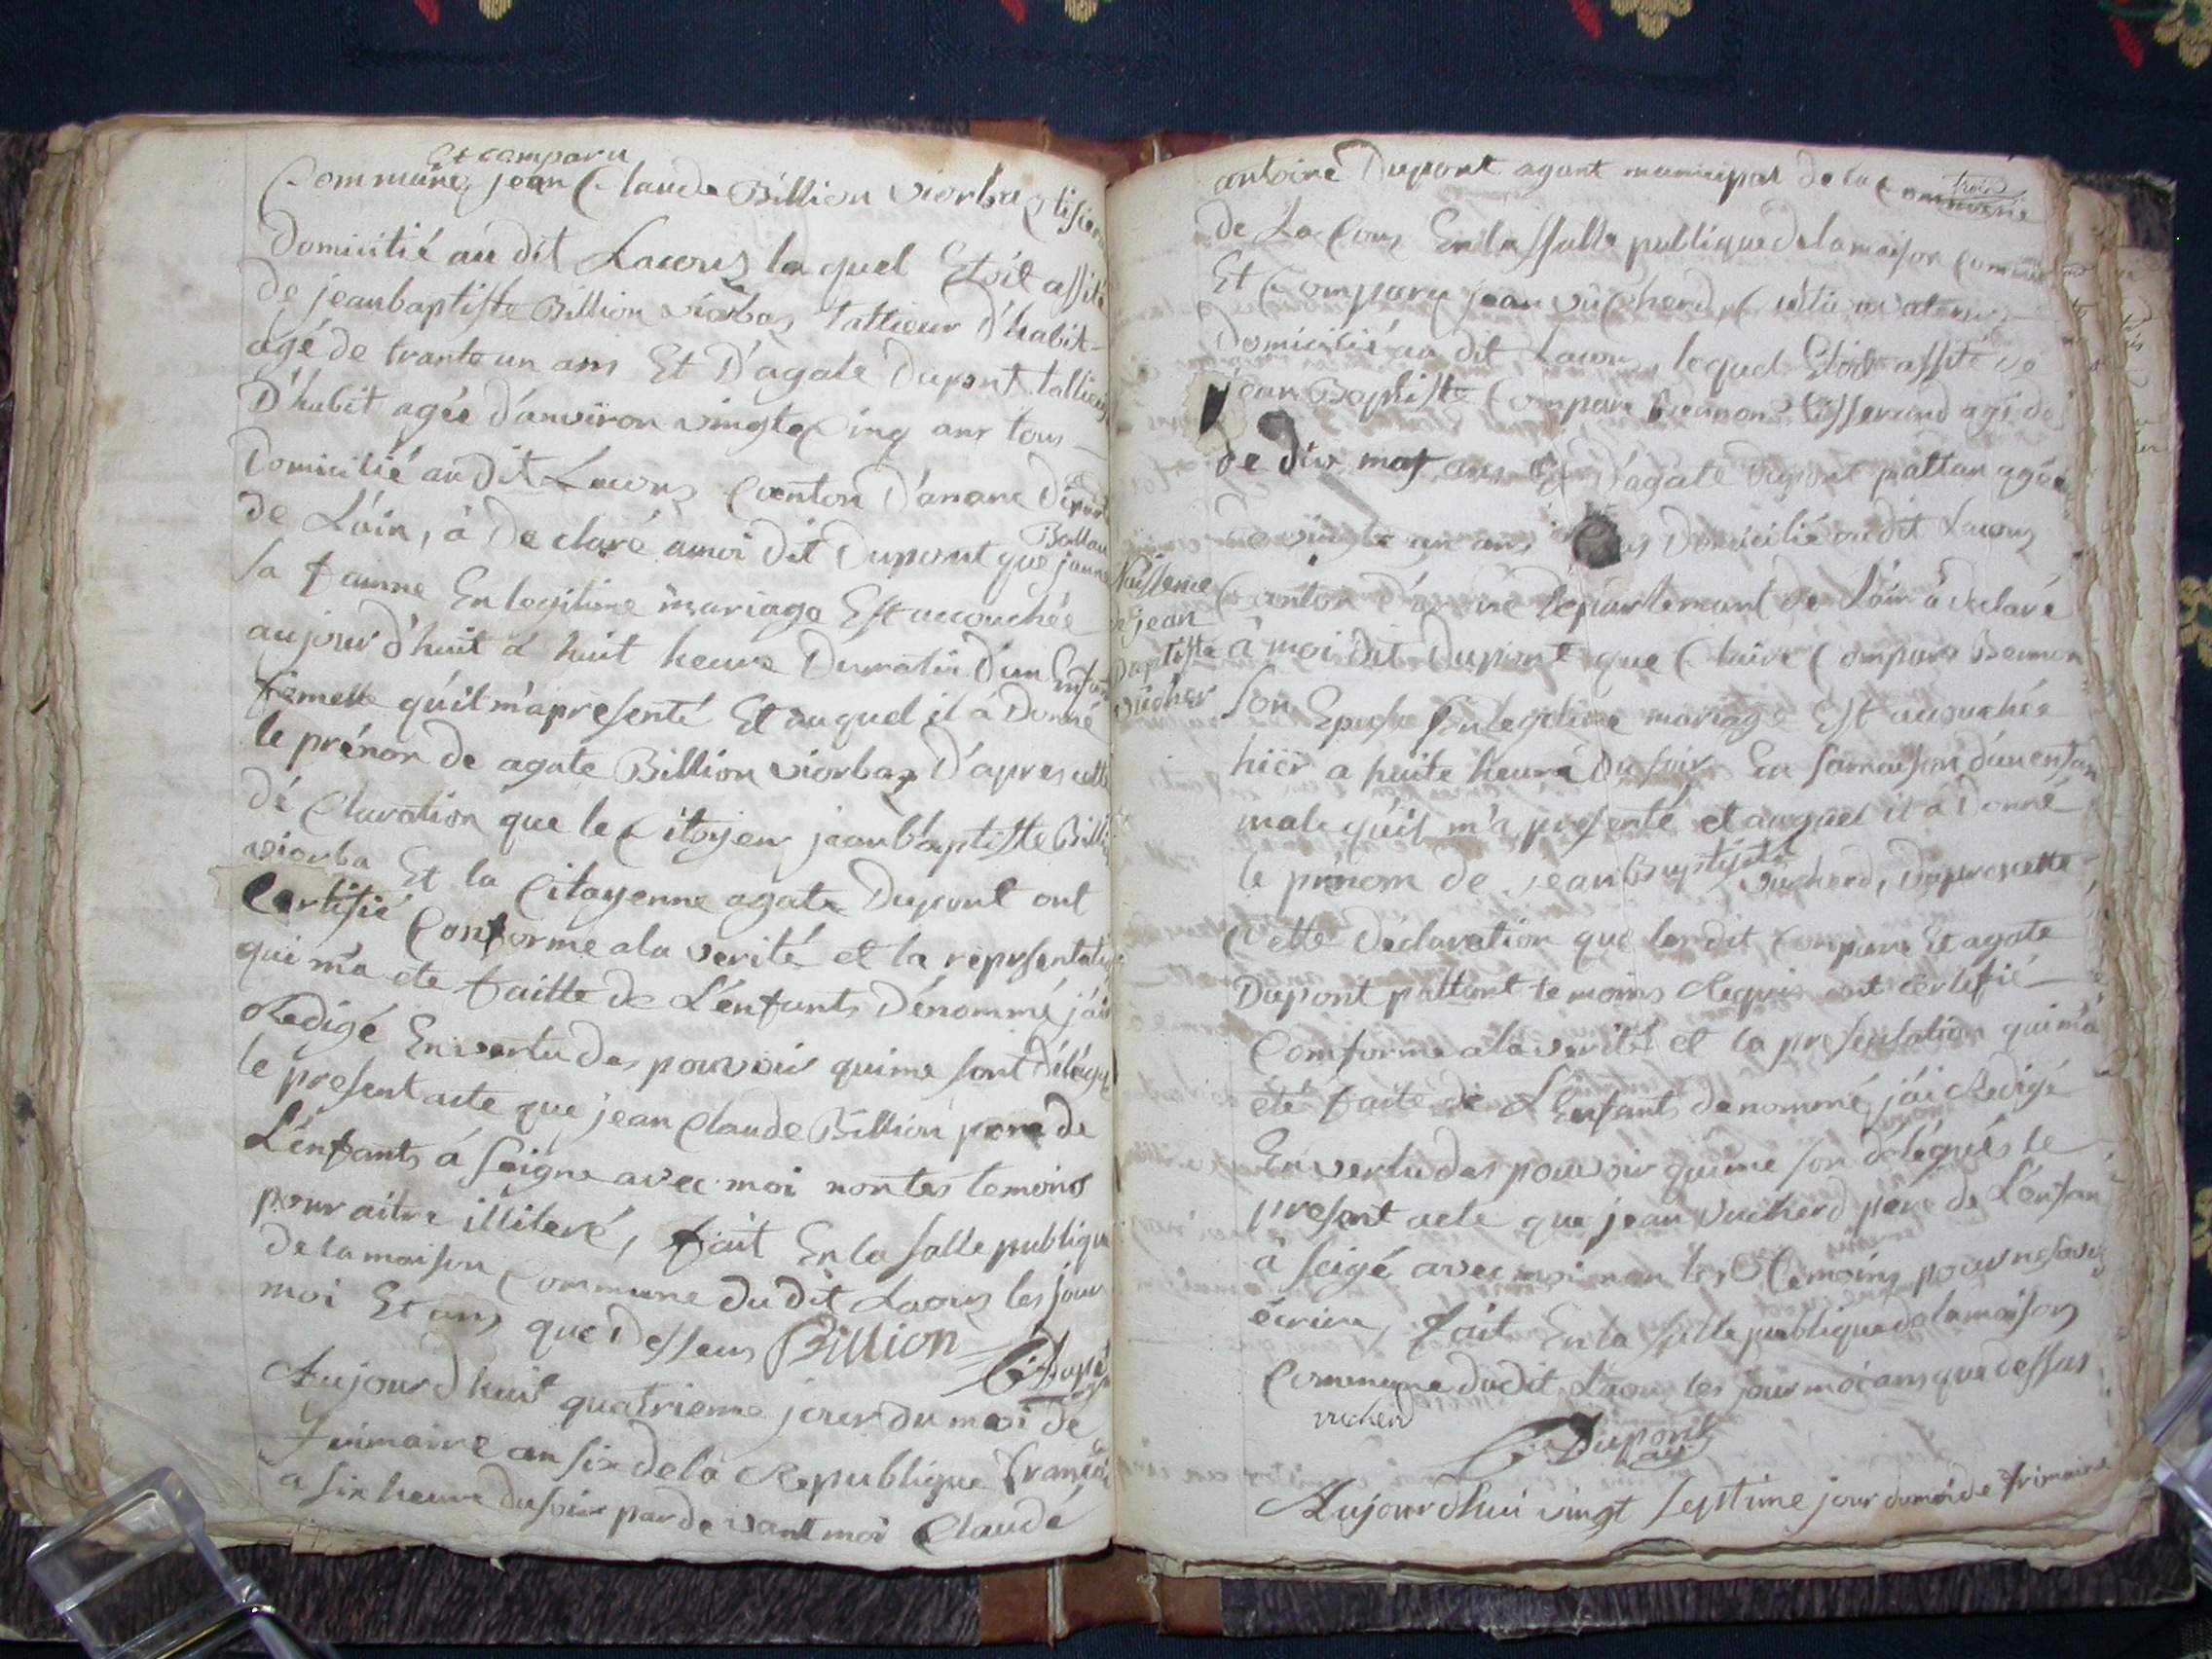 Et comparu
Commune jean Claude Billion viorba
Domicilié au dit Lacous la quel Etoit assité
de jeanbaptiste Billion viorbas tallieur d'habit
agé de trante un ans Et D'agate Dupont tallieus
D'habit agée d'anviron vingte Cinq ans tous
Domicilié au dit Lacous Canton D'anane Depart
de L'ain, à Declaré amoi dit Dupont que janne
Ballan
sa famme En legitime mariage Est accouchée
aujour d'huit à huit heure Dumatin d'un Enfan
femelle qu'il m'apresenté Et auquel il à Donné
le prénon de agate Billion viorbas D'apres cette
dé Claration que le Citoyen jeanbaptiste Billi
viorba Et la Citayenne agate Dupont ont
Certifié Conforme ala verité et la represantati
qui m'a ete faitte de L'enfants Dénommé j'ai
Redigé En vertu des pouvoir qui me sont délégu
le present acte que jean Claude Billion pere de
L'énfants á seigne avec moi non les temoins
pour aitre illiteré, fait En la salle publique
de la maison Commune du dit Lacous les jour
moi Et ans que Dessus Billion Dupont
Aujourd huit quatrieme jour du moi de
frimaire an six de la Republique françai
a six heure du soir par de vant moi Claude
antoine Dupont agant municipal de la Commune
de La Cous En la salle publique de la maison Commune
Et Comparu jean vucherd, Cultivateur
Domicilié au dit Lacous, lequel Etoit assité de
jean Baptiste Compare Beamon tisserand agé de
de dix nof ans Et D'agate Dupont pattan agée
de vingte un ans tous Domicilié au dit Lacous
Naissence
de jean
baptiste
vucher
Canton d' département de L'ain à declaré
à moi dit Dupont que Claire Compare Beamon
son Epuse En legitime mariage Est accouchée
hier a huite heure Du soir En samaison d'un enfan
male qu'il m'a presenté et auquel il à Donné
le prénom de jean Baptiste vucherd, D'apres cette
Cette Déclaration que les dit Compare Et agate
Dupont pattant temoins Requis ont Certifié
Comforme ala verité et la presentation qui m'a
été faite de L'Enfants denommé, j'ai Redigé
En vertu des pouvoir qui me son délégués le
present acte que jean vucherd pere de L'enfan
à seigé avec moi non les temoins pour ne savoi
écrire, fait En la salle publique de la maison
Commune du dit Lacous les jour moi ans que dessus
vucherd
Dupont
Aujourdhui vingt septime jour du moi de frimaire